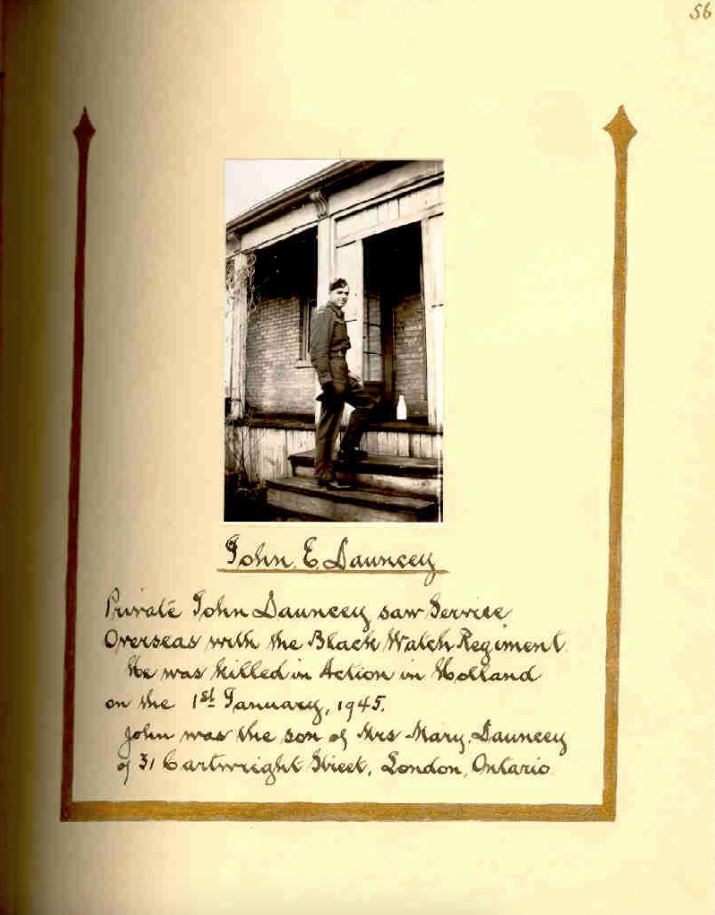 56
John. E. Dauncey
Private John Dauncey saw Service
Overseas with the Black Watch Regiment.
He was killed in Action in Holland
on the 1st January, 1945.
John was the son of Mrs Mary. Dauncey
of 31 Cartwright Street, London, Ontario.